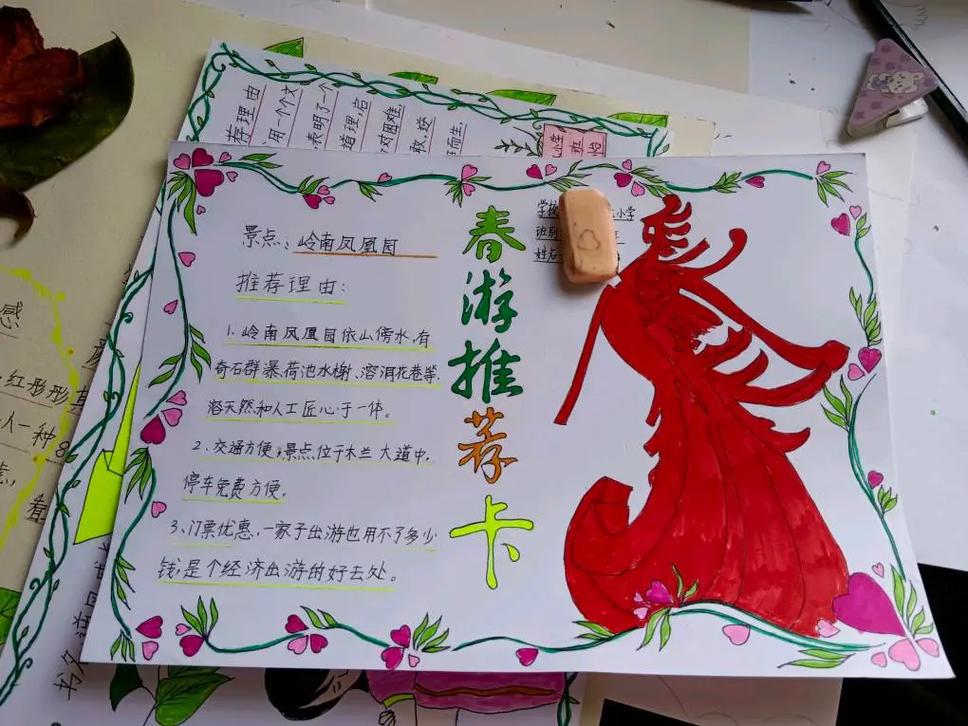 景点：岭南凤凰园
推荐理由：
1.岭南凤凰园依山傍水,有
奇石群瀑、荷池水榭、溶洞花巷等,
溶天然和人工匠心于一体。
2、交通方便,景点位于木兰大道中,
停车免费方便。
3、门票优惠,一家子出游也用不了多少
钱,是个经济出游的好去处。
春游推荐卡
学校
小学
班别
姓名
荐理由
用一个个文
表明了一个
道理,后
对困难,
敢,坚
而生
小学
班
怡
感
红彤彤
人一种
书名